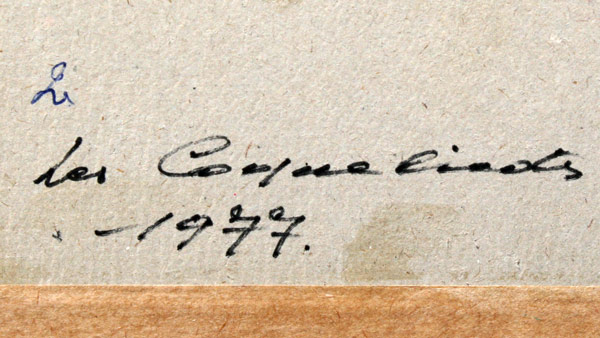 Les Coquelicots
- 1977.